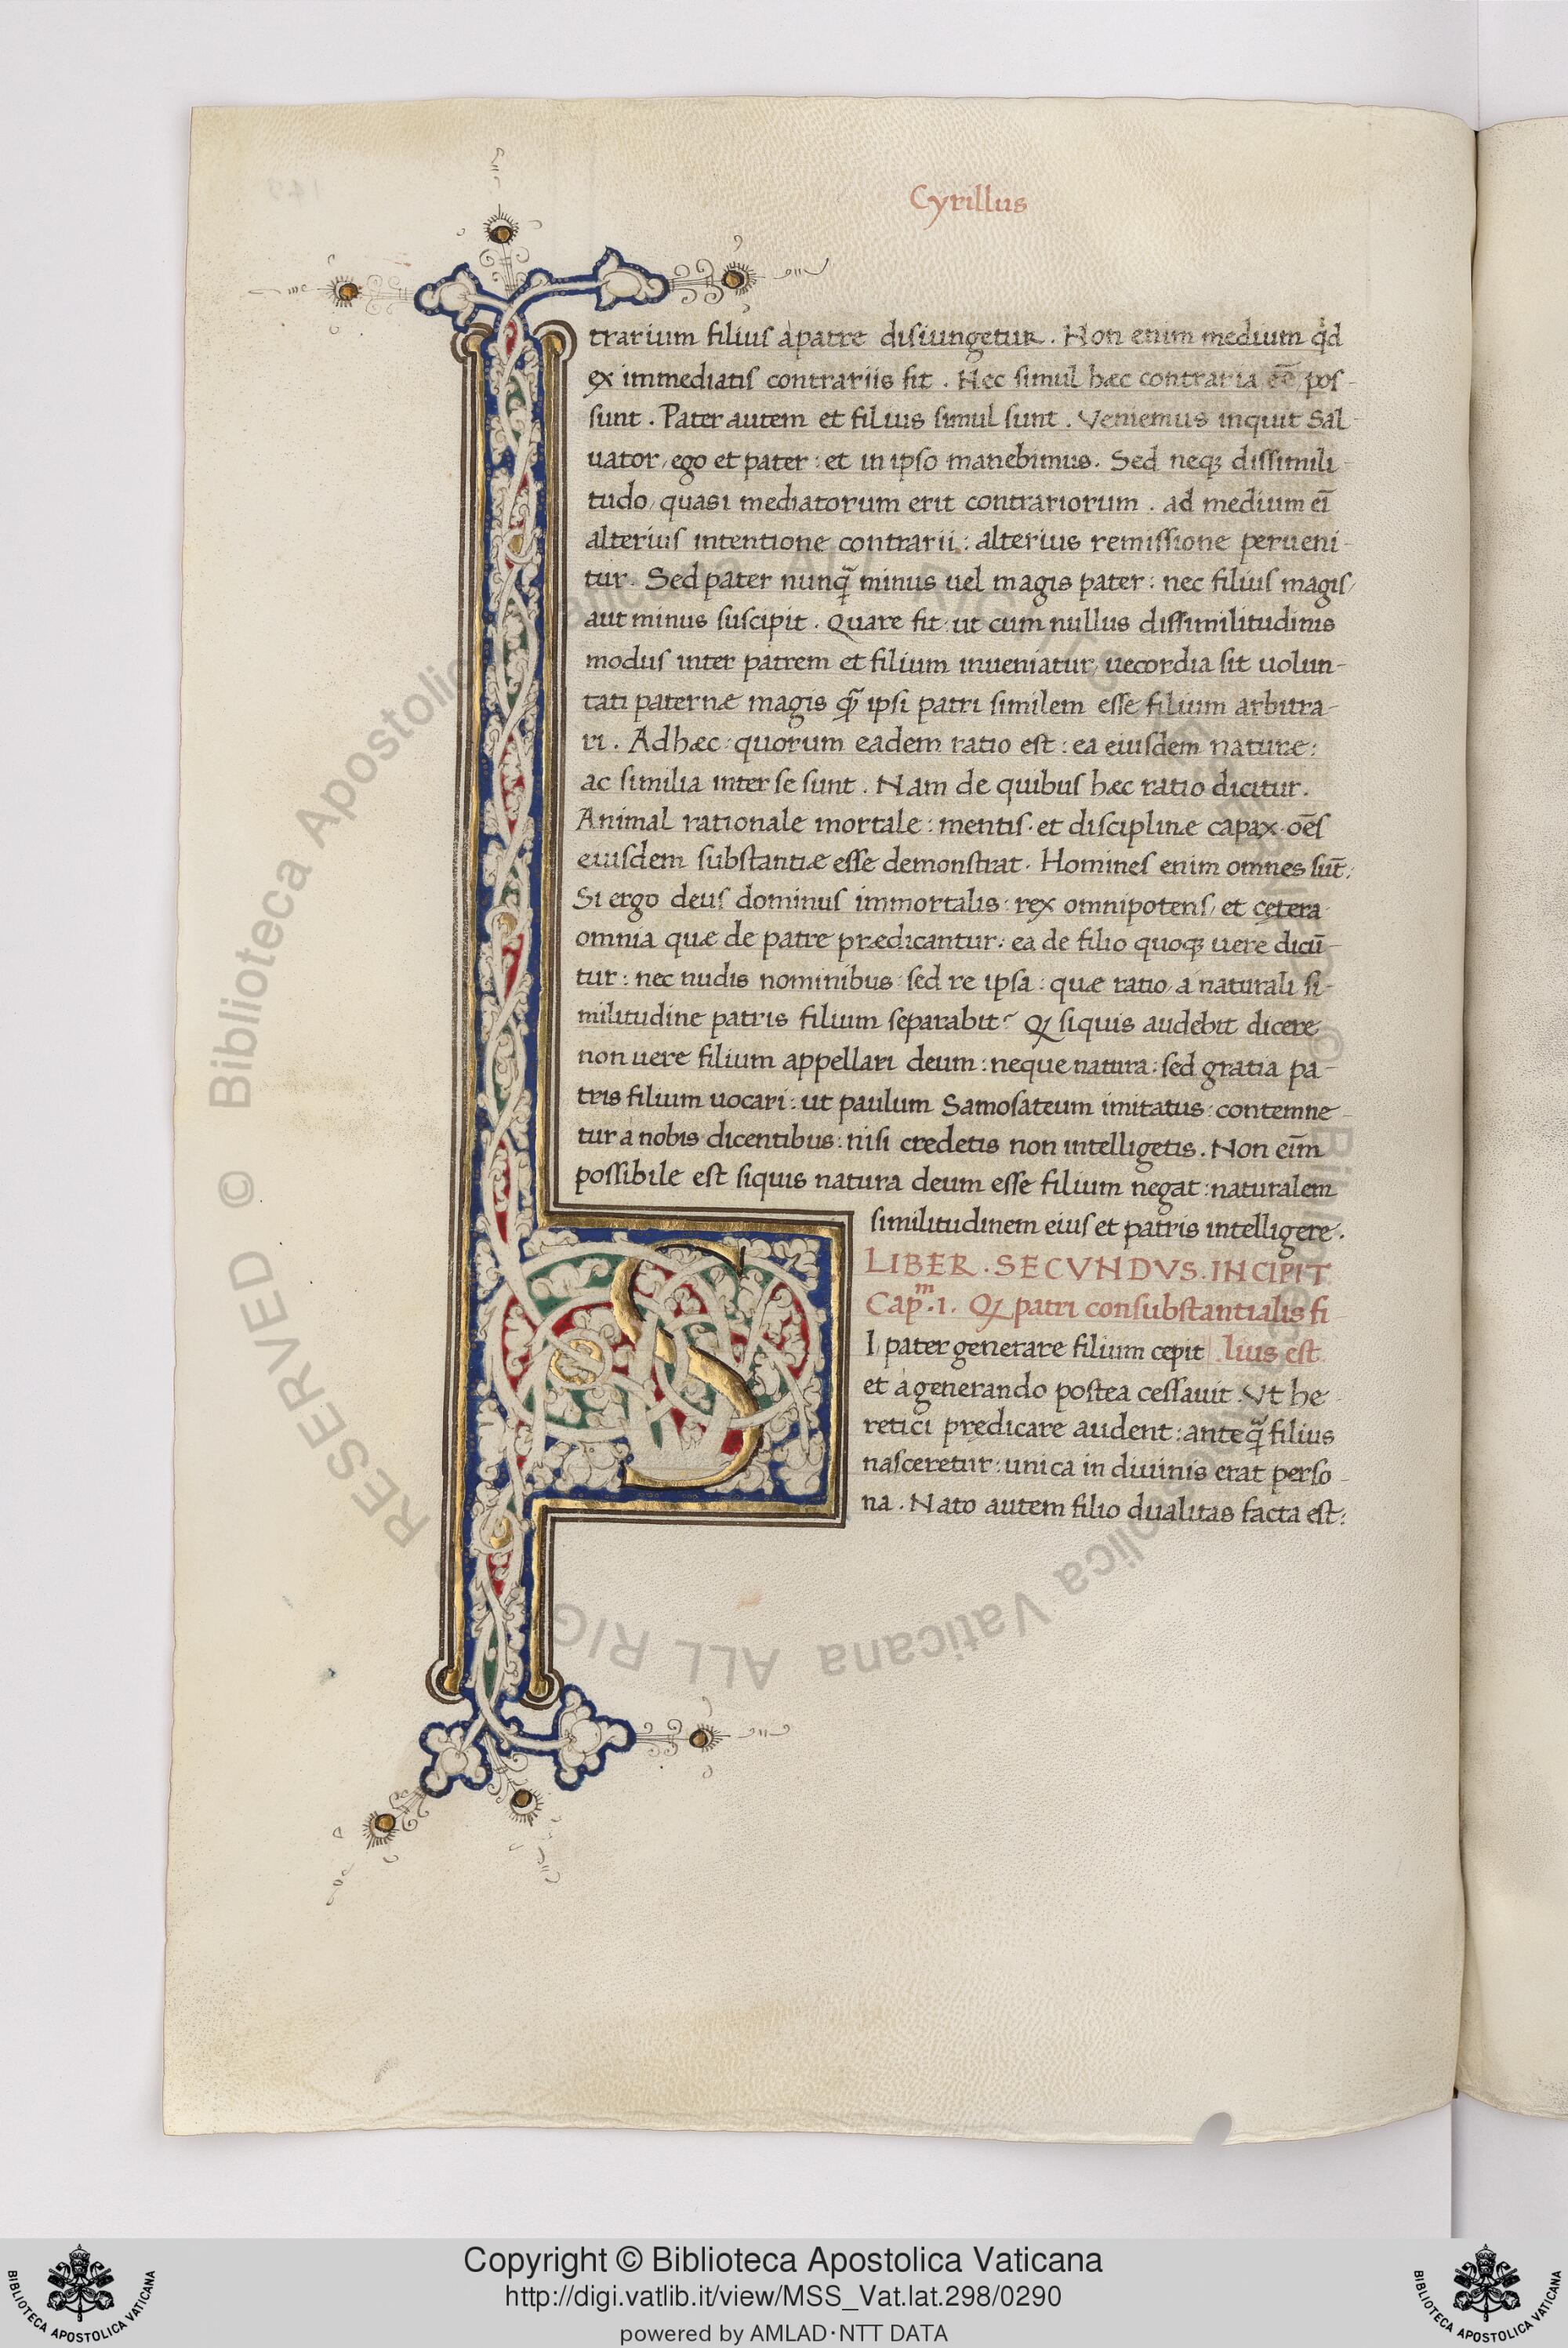 Cyrillus
trarium filius a patre disiungetur. Non enim medium qd
ex immediatis contrariis fit. Nec simul hæc contraria eē pos-
sunt. Pater autem et filius simul sunt. Veniemus inquit Sal-
uator, ego et pater: et in ipso manebimus. Sed neq; dissimili-
tudo, quasi mediatorum erit contrariorum. ad medium ei̅
alterius intentione contrarii: alterius remissione perueni-
tur. Sed pater nunq̃ minus uel magis pater: nec filius magis,
aut minus suscipit. Quare fit: ut cum nullus dissimilitudinis
modus inter patrem et filium inueniatur, uecordia sit uolun-
tati paternæ magis q̃ ipsi patri similem esse filium arbitra-
ri. Ad hæc: quorum eadem ratio est: ea eiusdem naturæ:
ac similia inter se sunt. Nam de quibus hæc ratio dicitur.
Animal rationale mortale: mentis. et disciplinæ capax. oēs
eiusdem substantiæ esse demonstrat. Homines enim omnes sūt:
Si ergo deus dominus immortalis: rex omnipotens, et cetera
omnia quæ de patre prædicantur: ea de filio quoq; uere dicū-
tur: nec nudis nominibus: sed re ipsa: quæ ratio, a naturali si-
militudine patris filium separabit? Q; siquis audebit dicere
non uere filium appellari deum: neque natura: sed gratia pa-
tris filium uocari: ut paulum Samosateum imitatus: contemne-
tur a nobis dicentibus: nisi credetis non intelligetis. Non eim̅
possibile est siquis natura deum esse filium negat: naturalem
similitudinem eius et patris intelligere.
LIBER. SECVNDVS. INCIPIT
Capᵐ. 1. Q; patri consubstantialis fi-
SI pater generare filium cepit lius est
et a generando postea cessauit. Vt he-
retici prędicare audent: anteq̃ filius
nasceretur: unica in diuinis erat perso-
na. Nato autem filio dualitas facta est:
Copyright © Biblioteca Apostolica Vaticana
http://digi.vatlib.it/view/MSS_Vat.lat.298/0290
powered by AMLAD·NTT DATA
BIBLIOTECA APOSTOLICA VATICANA
BIBLIOTECA APOSTOLICA VATICANA